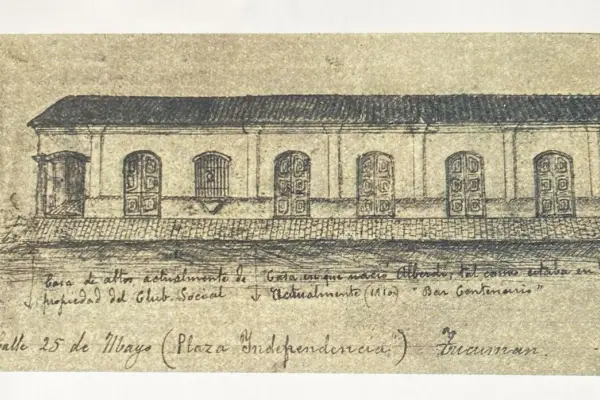 Casa de altos actualmente de
propiedad del Club Social
Casa en que nació Alberdi, tal como estaba en
Actualmente (1910) "Bar Centenario"
Calle 25 de Mayo (Plaza Independencia) Tucuman.